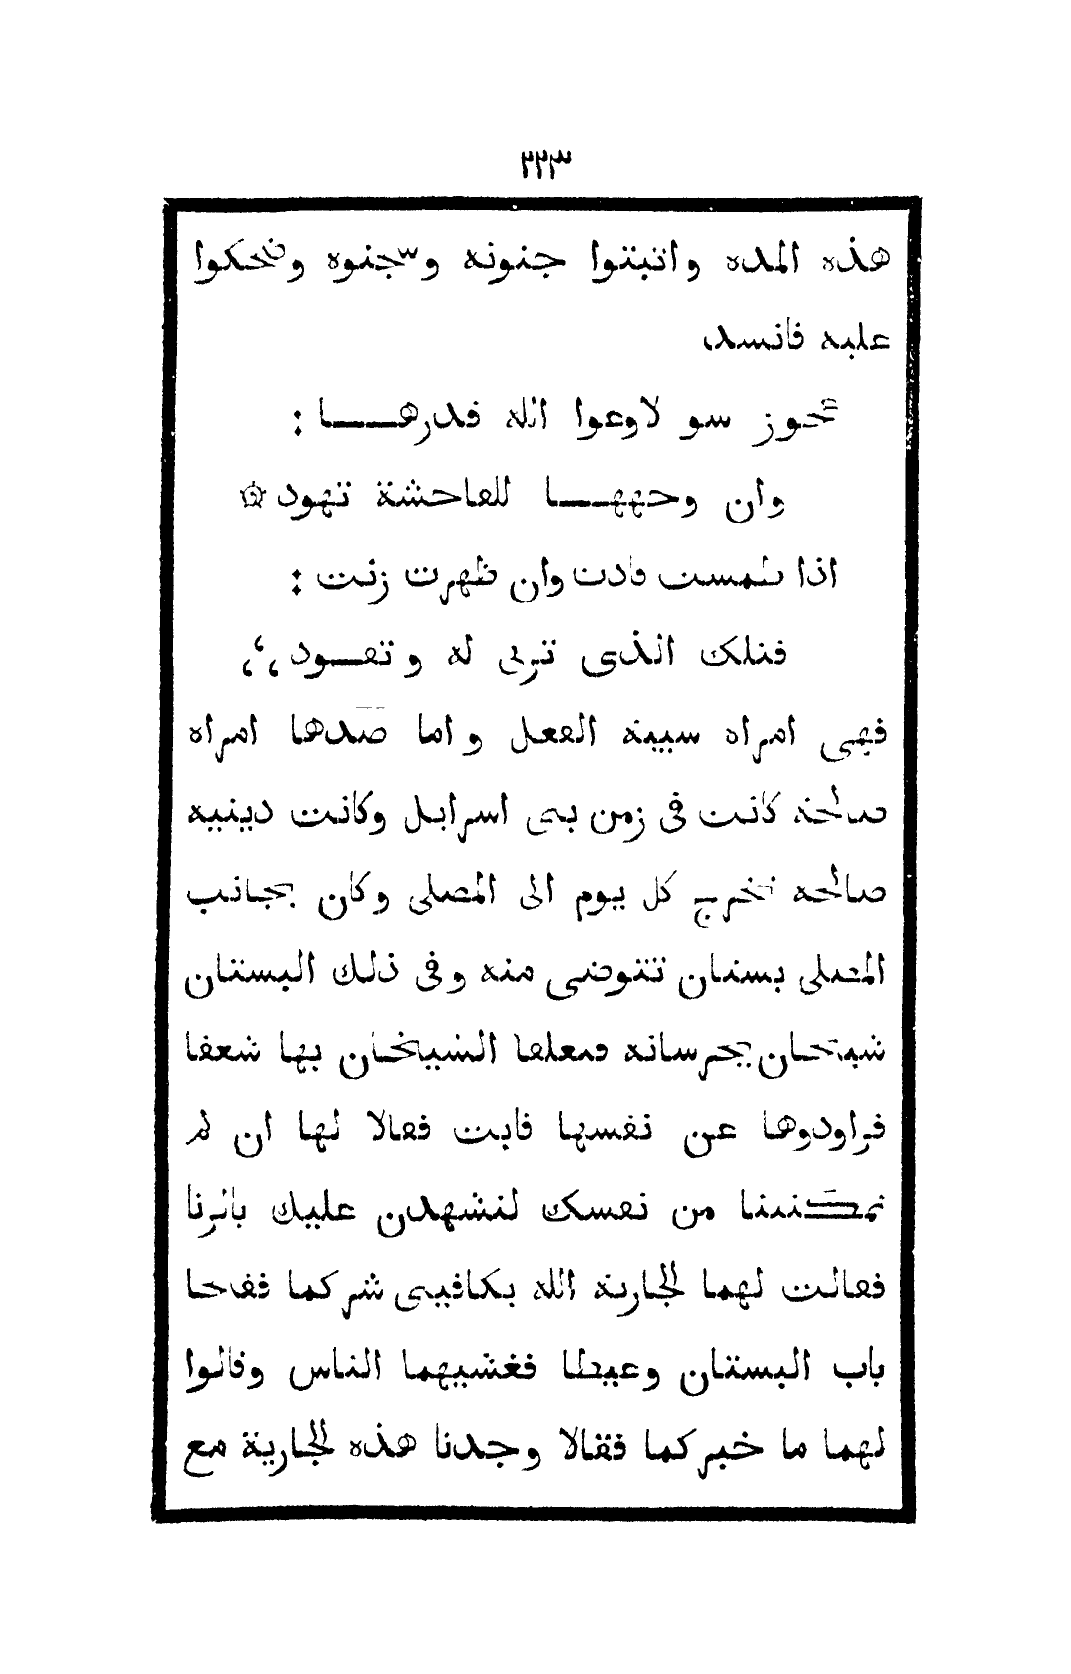 ٢٢٣
هذه المده واثبتوا جنونه وسجنوه وضحكوا
عليه فانسد،
عجوز سو لاوعوا الله قدرهـــا :
وان وجههـــا للفاحشة تهود ۞
اذا طمست قادت وان ظهرت زنت :
فتلك الذى تربى له وتقـــود ،،
فهى امراه سيينه الفعل واما ضدها امراه
صالحة كانت فى زمن بنى اسرايل وكانت دينيه
صالحه تخرج كل يوم الى المصلى وكان بجانب
المصلى بستان تتوضى منه وفى ذلك البستان
شيخان يحرسانه فتعلقا الشيخان بها شغفا
فراودوها عن نفسها فابت فقالا لها ان لم
تمكنينا من نفسك لنشهدن عليك بالزنا
فقالت لهما الجارية الله يكافينى شركما ففاحا
باب البستان وعيطا فغشيهما الناس وقالوا
لهما ما خبركما فقالا وجدنا هذه الجارية مع